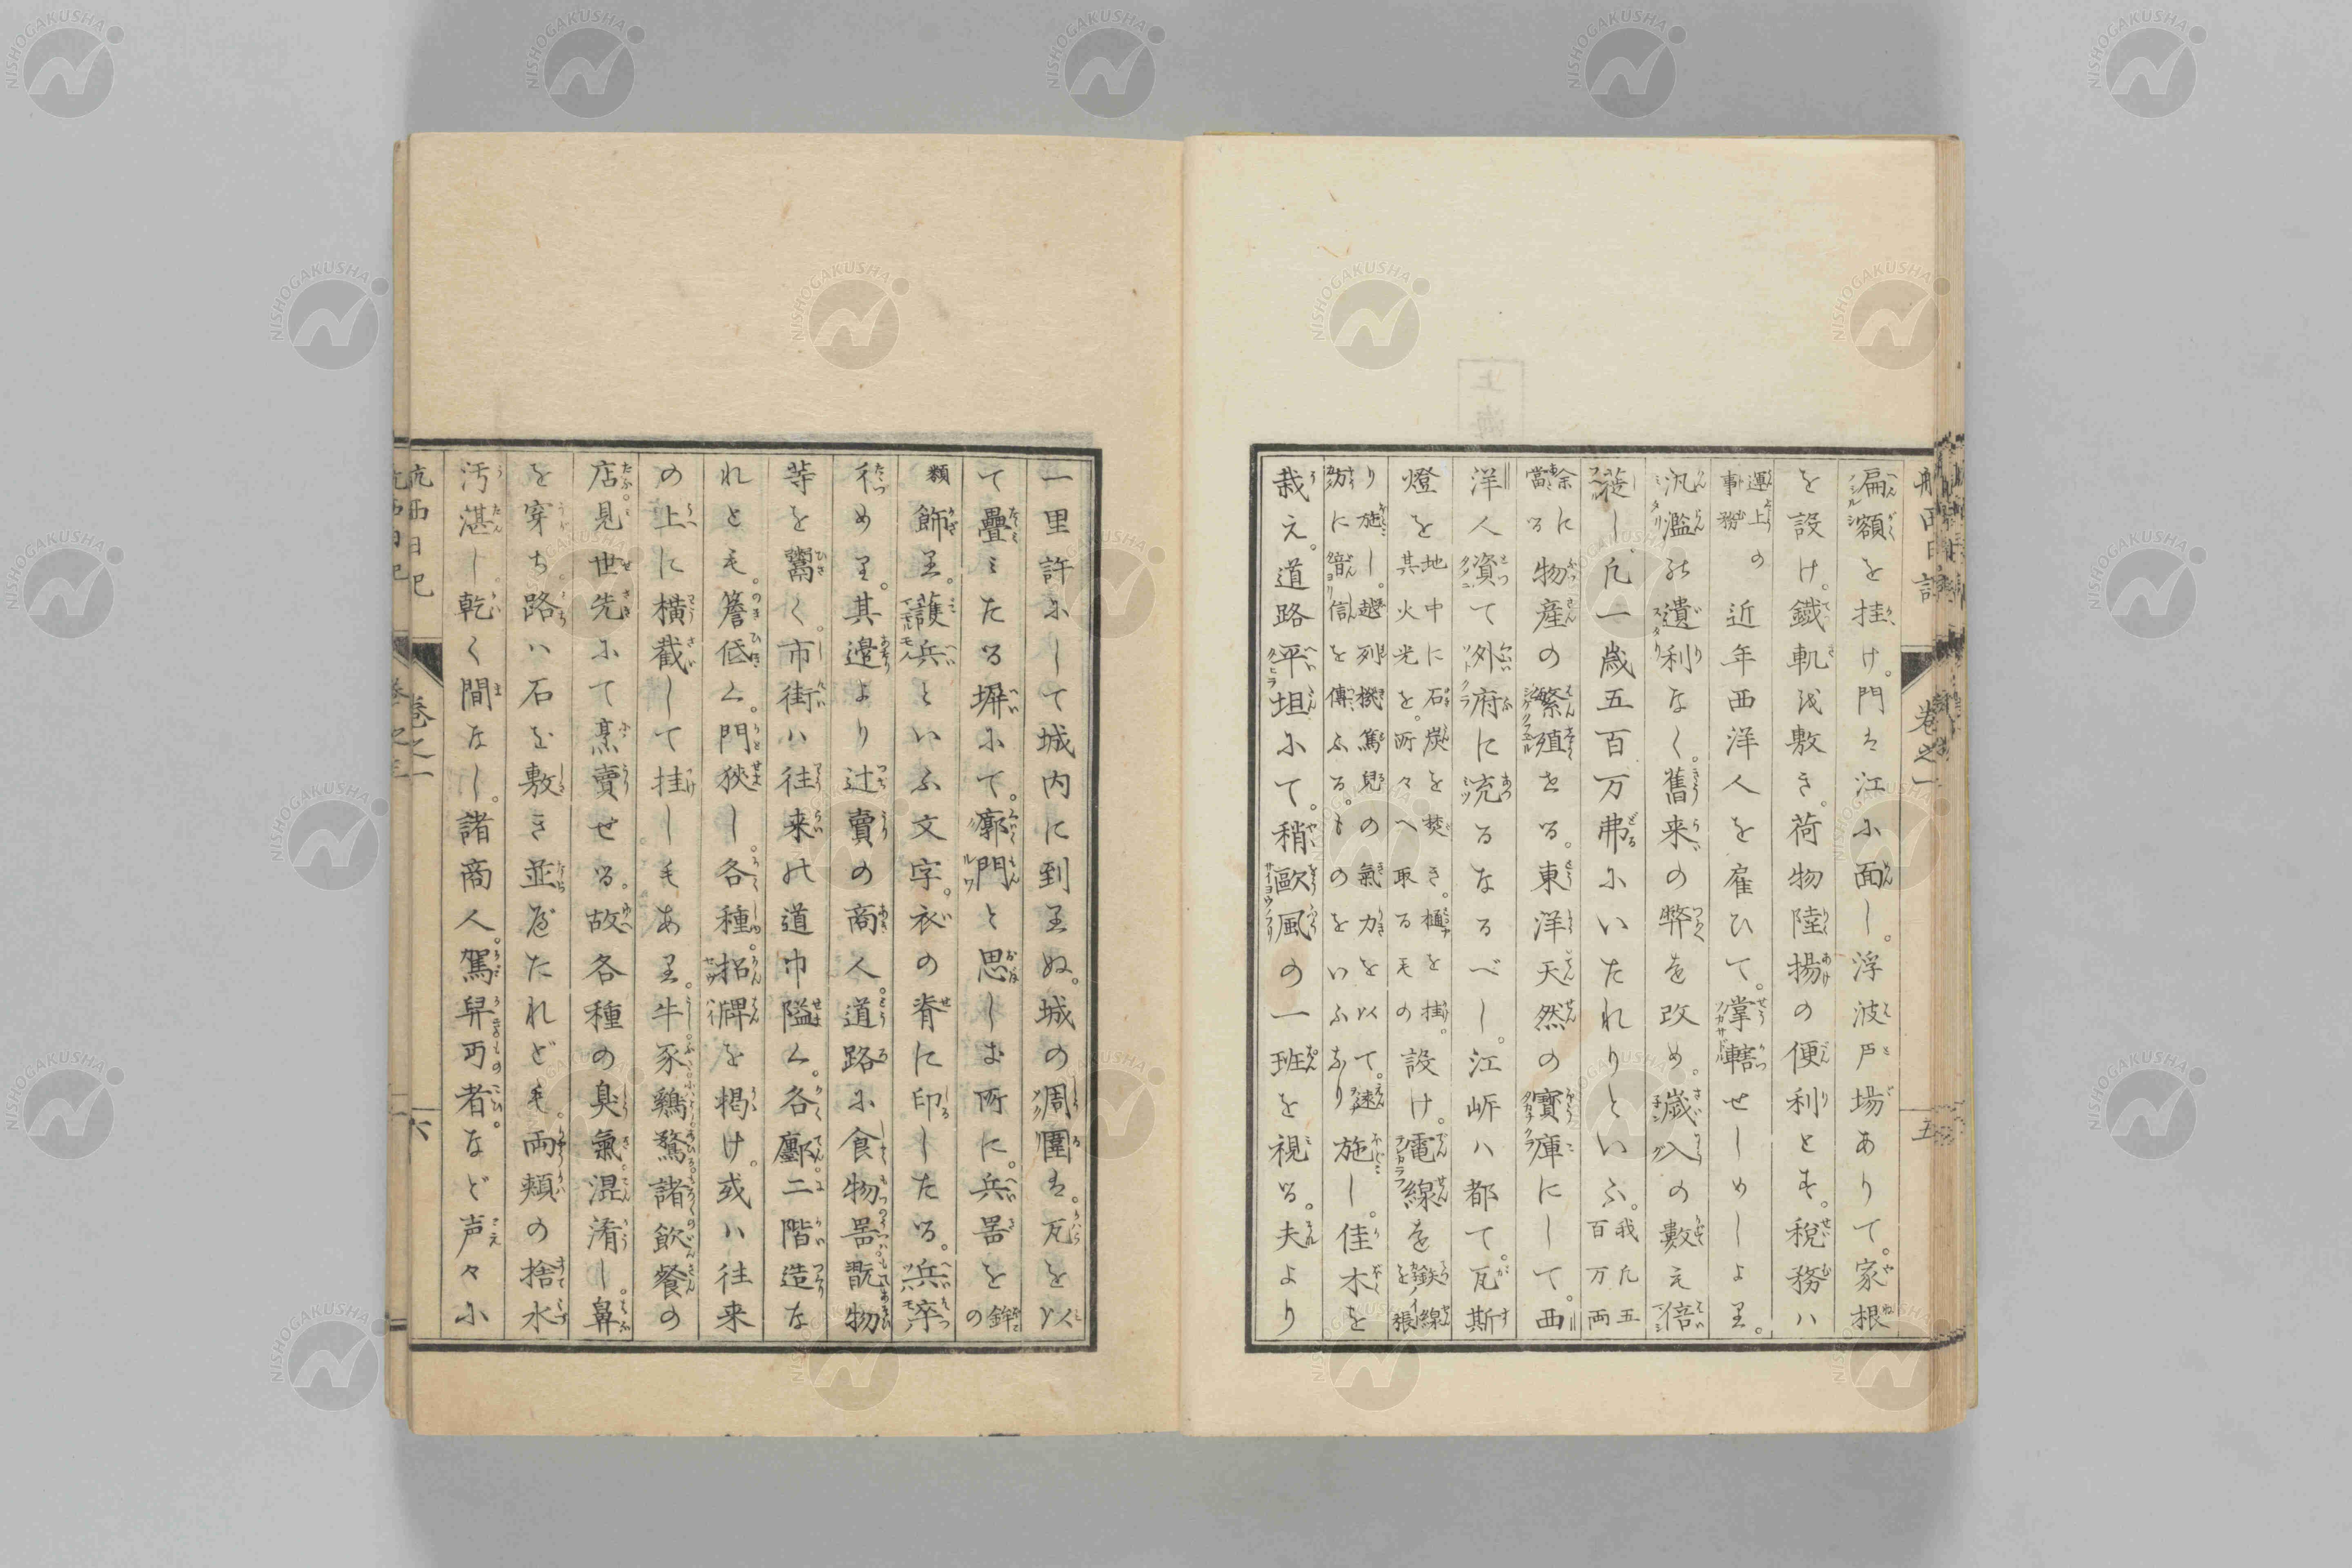 航西日記 卷之一 五
扁額を挂け。門は江に面し。浮波戸場ありて。家根
を設け。鐵軌を敷き。荷物陸揚の便利とす。税務ハ
運上事務の近年西洋人を雇ひて。掌轄せしめしより。
汎濫の遺利なく。舊来の弊を改め。歳入の數え倍
蓰し。凡一歳五百万弗にいたれりといふ。我九五百万両
余に當る物産の繁殖せる。東洋天然の寶庫にして。西
洋人資て外府に流るなるべし。江岍ハ都て。瓦斯
燈を地中に石炭を焚き。樋を掛。其火光を。所々へ取るもの設け。電線を鉄線を張
り施し。越列機篤兒の氣力を以て。遠方に音信を傳ふる。ものをいふなり施し。佳木を
栽え。道路平坦にて。稍歐風の一班を視る。夫より
一里許にして城内に到りぬ。城の周圍は。瓦を以
て疊ミたる塀にて。廓門と思しき所に。兵器をの鉾
類飾り。護兵といふ文字。衣の脊に印したる。兵卒
彳めり。其邊より辻賣の商人。道路に食物器翫物
等を鬻く。市街ハ往来の道巾隘く。各鄽二階造な
れとも。簷低く。門狹し。各種招牌を掲け。或ハ往来
の上に横截して挂しもあり。牛豕鶏鶩諸飲餐の
店見世先にて烹賣せる。故各種の臭氣混淆し。鼻
を穿ち路ハ石を敷き並へたれども。両頬の捨水
汚湛し乾く間なし。諸商人。駕舁丐者。など声々に
航西日記 卷之一 六